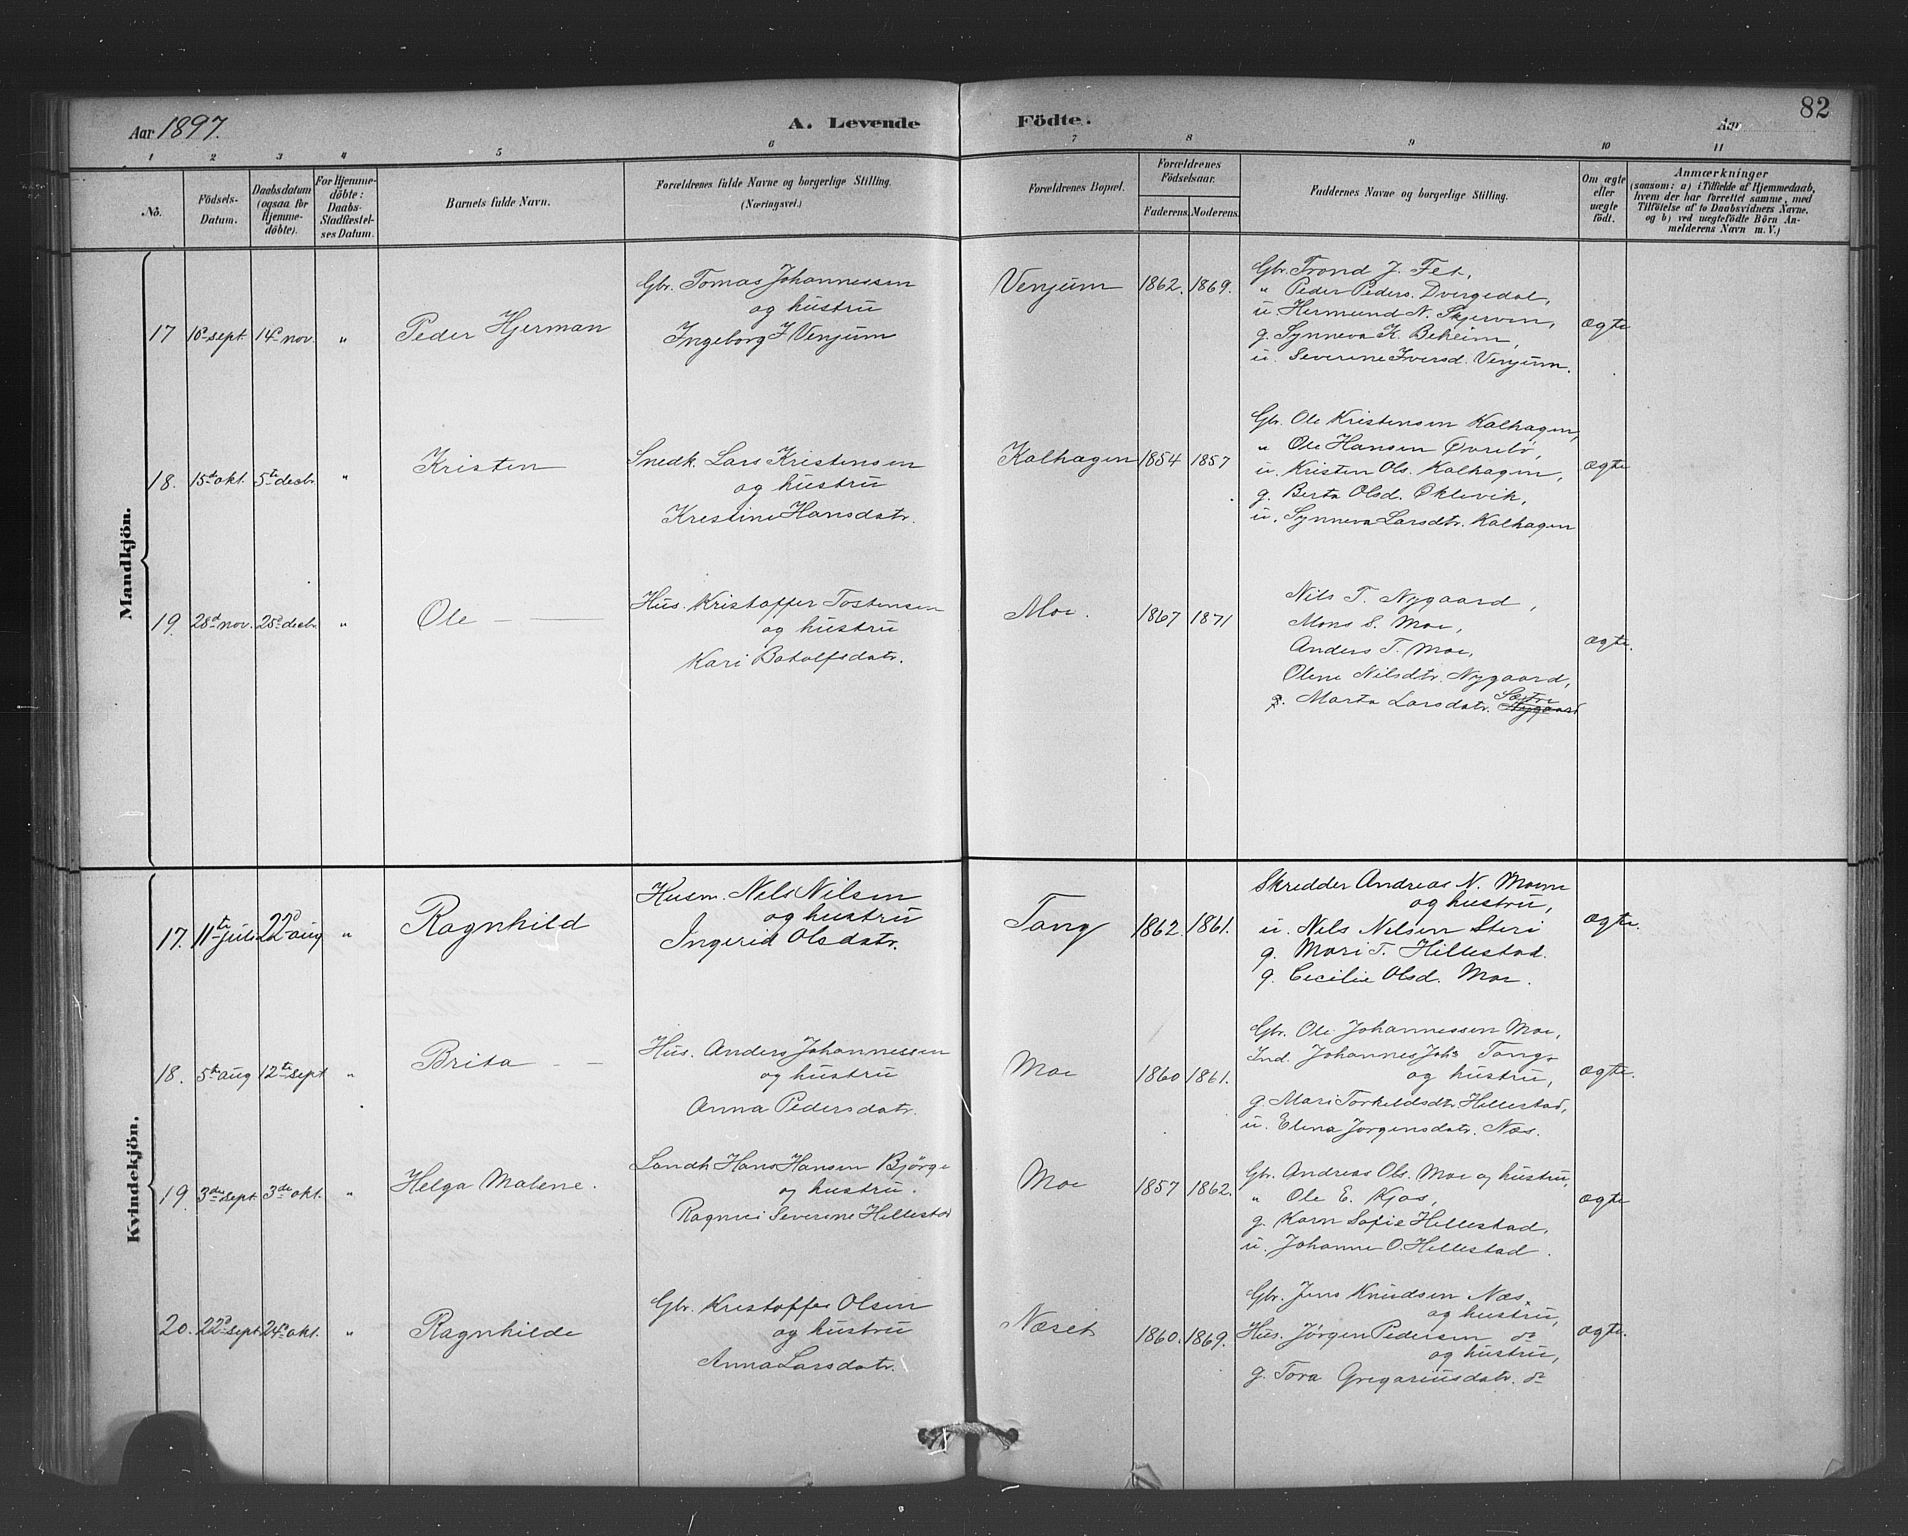 82
Aar 1897. A. Levende Födte. Aar
1 2 3 4 5 6 7 8 9 10 11
No.
Födsels-Datum.
Daabsdatum (ogsaa for Hjemme-döbte).
For Hjemme-döbte: Daabs-Stadfæstel-ses Datum.
Barnets fulde Navn.
Forældrenes fulde Navne og borgerlige Stilling.
(Næringsvei.)
Forældrenes Bopæl.
Forældrenes Födselsaar.
Faderens. Moderens.
Faddernes Navne og borgerlige Stilling.
Om ægte eller uægte födt.
Anmærkninger
(saasom: a) i Tilfælde af Hjemmedaab,
hvem der har forrettet samme, med
Tilföielse af to Daabsvidners Navne,
og b) ved uægtefödte Börn An-
melderens Navn m. V.)
Mandkjön.
17 10de sept. 14de nov. " Peder Hjerman
Gbr. Tomas Johannessen
og hustru
Ingeborg J Venjum
Venjum 1862. 1869.
Gbr. Trond J. Fet,
" Peder Peders. Dvergedal,
u. Hermund N. Skjerven,
g. Synneva K. Beheim,
u. Severine Iversd. Venjum.
ægte
18. 15de okt. 5te decbr. " Kristen
Snedk. Lars Kristensen
og hustru
Kristine Hansdatr.
Kalhagen 1854 1857
Gbr. Ole Kristensen Kalhagen,
" Ole Hansen Øvrebö,
u. Kristen Ols. Kalhagen,
g. Berta Olsd. Eklevik,
u. Synneva Larsdtr. Kalhagen
ægte
19. 28de nov. 25de decbr. " Ole
Hus. Kristoffer Tostensen
og hustru
Kari Botolfsdatr.
Moe. 1867 1871
Nils T. Nygaard,
Mons S. Moe,
Anders T. Moe,
Oline Nilsdtr. Nygaard,
g. Marta Larsdatr. Sætre Nygaard
ægte.
Kvindekjön.
17. 11te juli 22de aug " Ragnhild
Husm. Nils Nilsen
og hustru
Ingerid Olsdatr.
Tang 1862. 1861.
Skredder Andreas N. Moene
og hustru,
u. Nils Nilsen Steri
g. Mari T. Hillestad.
g. Cecilie Olsd. Moe.
ægte.
18. 5te aug 12te sept " Brita
Hus. Anders Johannessen
og hustru
Anna Pedersdatr.
Moe 1860 1861.
Gbr. Ole Johannessen Moe,
Ind. Johannes Johs Tang
og hustru,
g. Mari Torkeldsdtr. Hillestad,
u. Elina Jørgensdatr. Næs.
ægte.
19. 3die sept 3die okt. " Helga Malene.
Landh. Hans Hansen Bjørge
og hustru.
Ragna Severine Hillestad
Moe 1857 1862.
Gbr. Andreas Ols. Moe og hustru,
" Ole E. Kjos,
g. Karn Sofie Hillestad,
u. Johanne O. Hillestad.
ægte
20. 22de sept 24de okt. " Ragnhilde
Gbr. Kristoffer Olsen
og hustru
Anna Larsdatr.
Næset 1860. 1869.
Gbr. Jens Knudsen Næs,
og hustru,
Hus. Jørgen Pedersen do
og hustru,
g. Tora Gregoriusdatr. do
ægte.